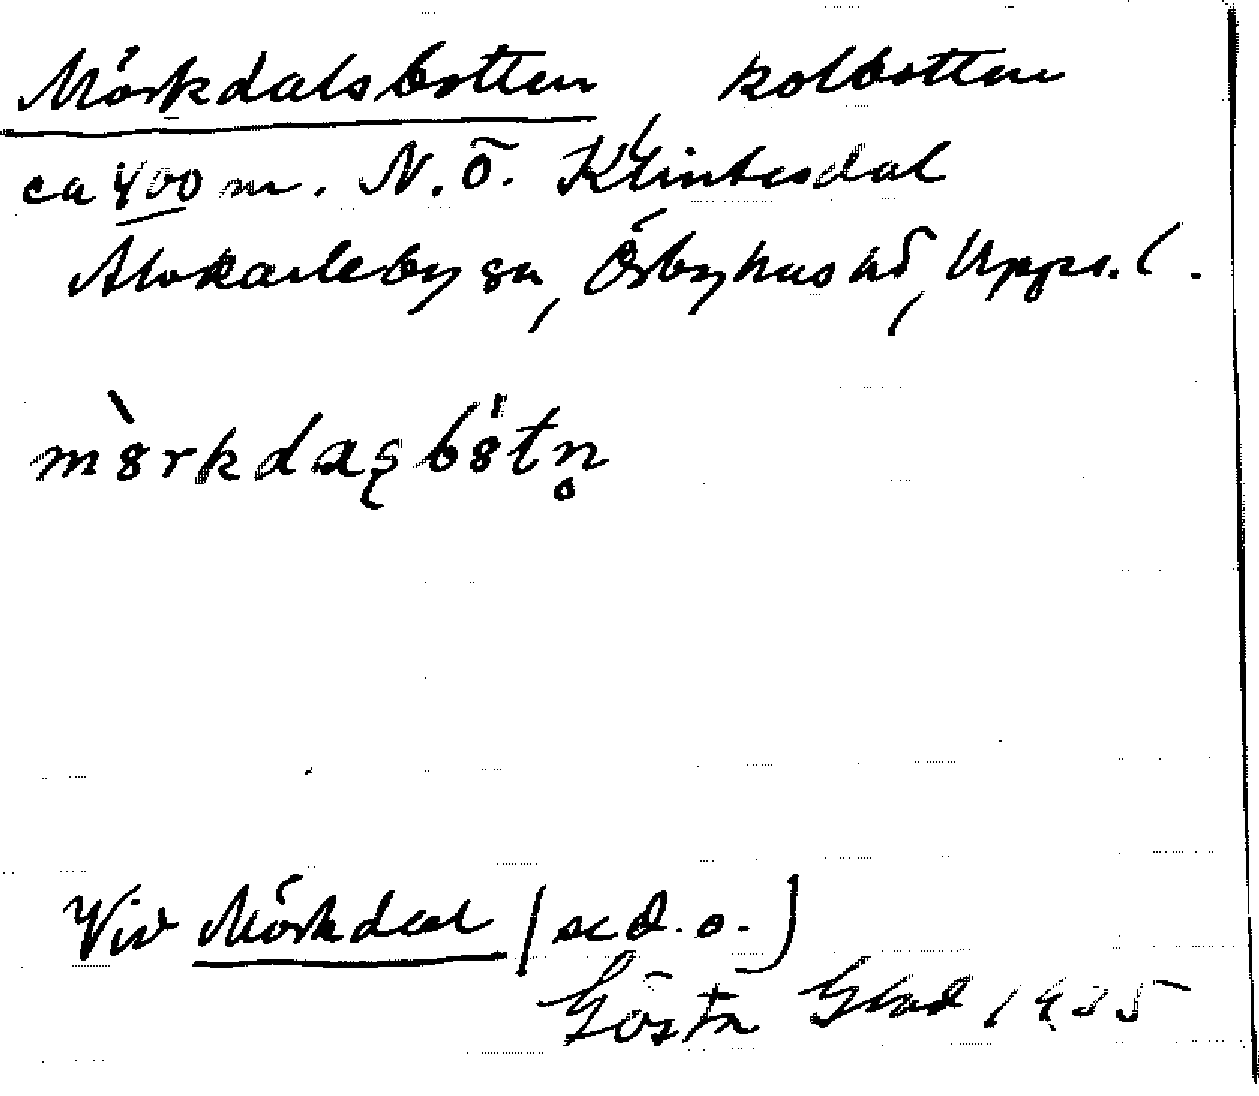 Mörkdalsbotten, kolbotten
ca 400 m. N.Ö. Klintesdal
Älvkarleby sn, Örbyhus hd, Upps. l.
Vid Mörkdal (se d. o.)
Gösta Glad 1935